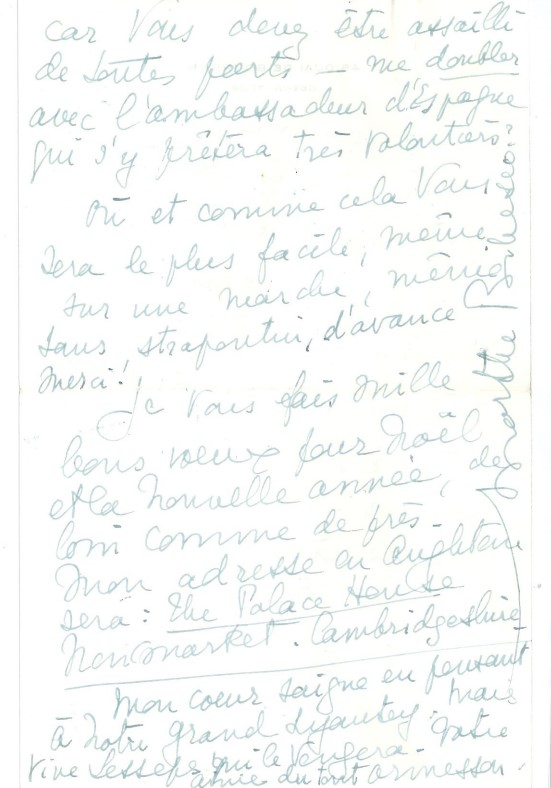 car Vous devez être assailli
de toutes parts — me doubler
avec l'ambassadeur d'Espagne
qui s'y prêtera très volontiers?
Où et comme cela Vous
sera le plus facile, même
sur une marche, même
sans strapontin, d'avance
merci!
Je Vous fais mille
bons vœux pour Noël
et la Nouvelle année, de
loin comme de près.
Mon adresse en Angleterre
sera: The Palace House
Newmarket. Cambridgeshire
Mon cœur saigne en pensant
à notre grand Lyautey. mais
Vive Lesseps qui le Vengera. Votre
amie du
Marthe Bibesco